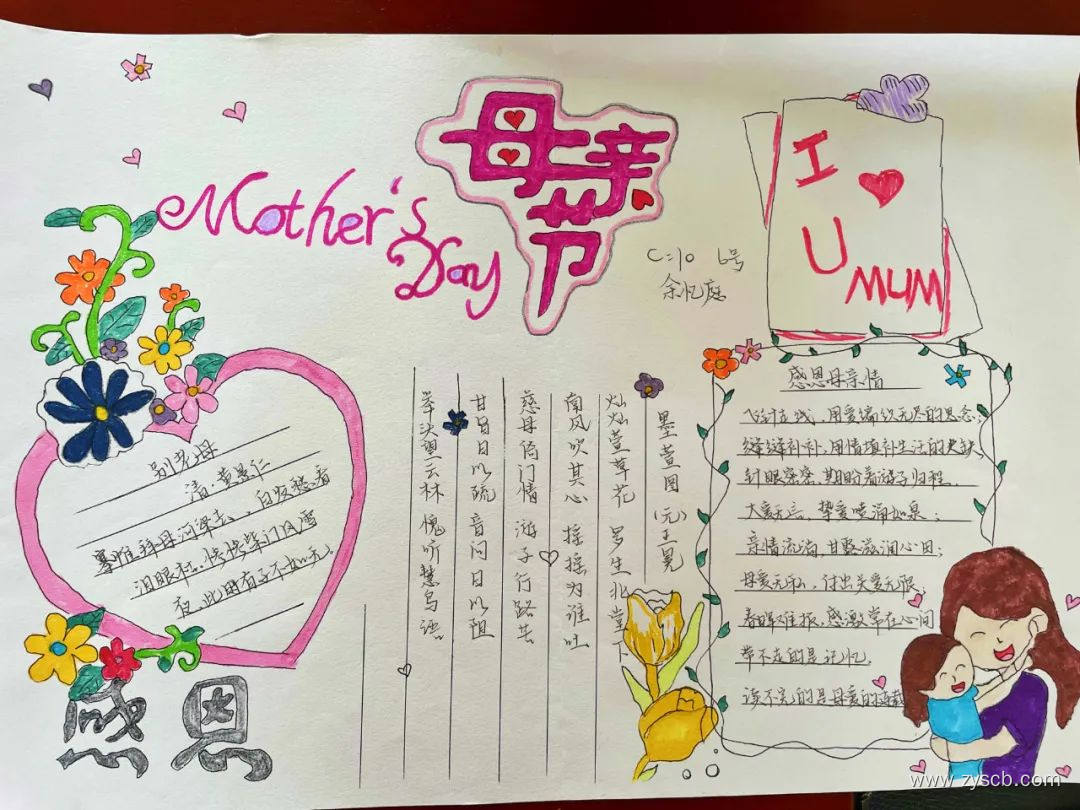 母亲节
Mother's
Day
C:10 6号
余忆庭
I ♥
U
MUM
别老母
清·黄景仁
搴帷拜母河梁去，白发愁看
泪眼枯。惨惨柴门风雪
夜，此时有子不如无。
感恩
墨萱图 (元) 王冕
灿灿萱草花 罗生北堂下
南风吹其心 摇摇为谁吐
慈母倚门情 游子行路苦
甘旨日以疏 音问日以阻
举头望云林 愧听慧鸟语
感恩母亲情
飞针走线，用爱编织无尽的思念；
缝缝补补，用情填补生活的欠缺，
针眼密密，期盼着游子归程。
大爱无言，挚爱喷涌如泉；
亲情流淌，甘露滋润心田；
母爱无私，付出关爱无限，
春晖难报，感激常在心间
带不走的是记忆，
读不完的是母爱的
www.zyscb.com